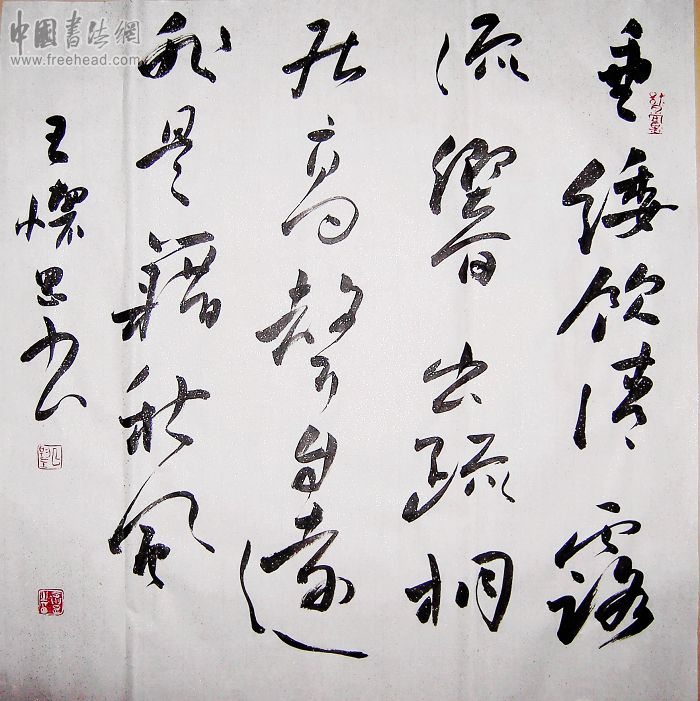 中国书法網
www.freehead.com
垂緌飲清露
流響出疏桐
居高聲自遠
非是藉秋風
王懷思書